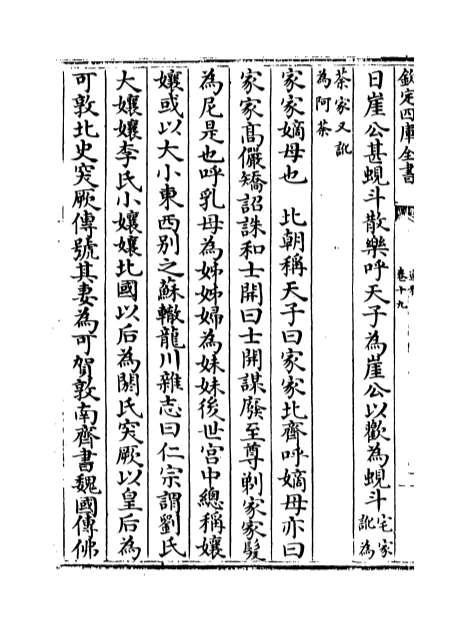 欽定四庫全書
卷十九
日崖公甚蜆斗散樂呼天子為崖公以歡為蜆斗宅家訛為
茶家又訛為阿茶
家家嫡母也　北朝稱天子曰家家北齊呼嫡母亦曰
家家髙儼矯詔誅和士開曰士開謀廢至尊剃家家髮
為尼是也呼乳母為姊姊婦為妹妹後世宫中總稱孃
孃或以大小東西别之蘇轍龍川雜志曰仁宗謂劉氏
大孃孃李氏小孃孃北國以后為閼氏突厥以皇后為
可敦北史突厥傳號其妻為可賀敦南齊書魏國傳佛